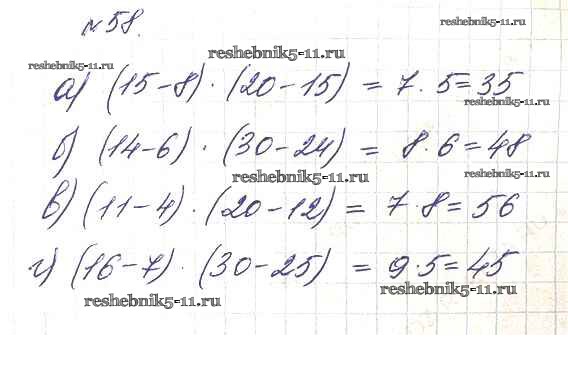 №58.
reshebnik5-11.ru
reshebnik5-11.ru
reshebnik5-11.ru
а) (15-8)·(20-15) = 7·5=35
reshebnik5-11.ru
б) (14-6)·(30-24) = 8·6=48
reshebnik5-11.ru
reshebnik5-11.ru
в) (11-4)·(20-12) = 7·8=56
г) (16-7)·(30-25) = 9·5=45
reshebnik5-11.ru
reshebnik5-11.ru